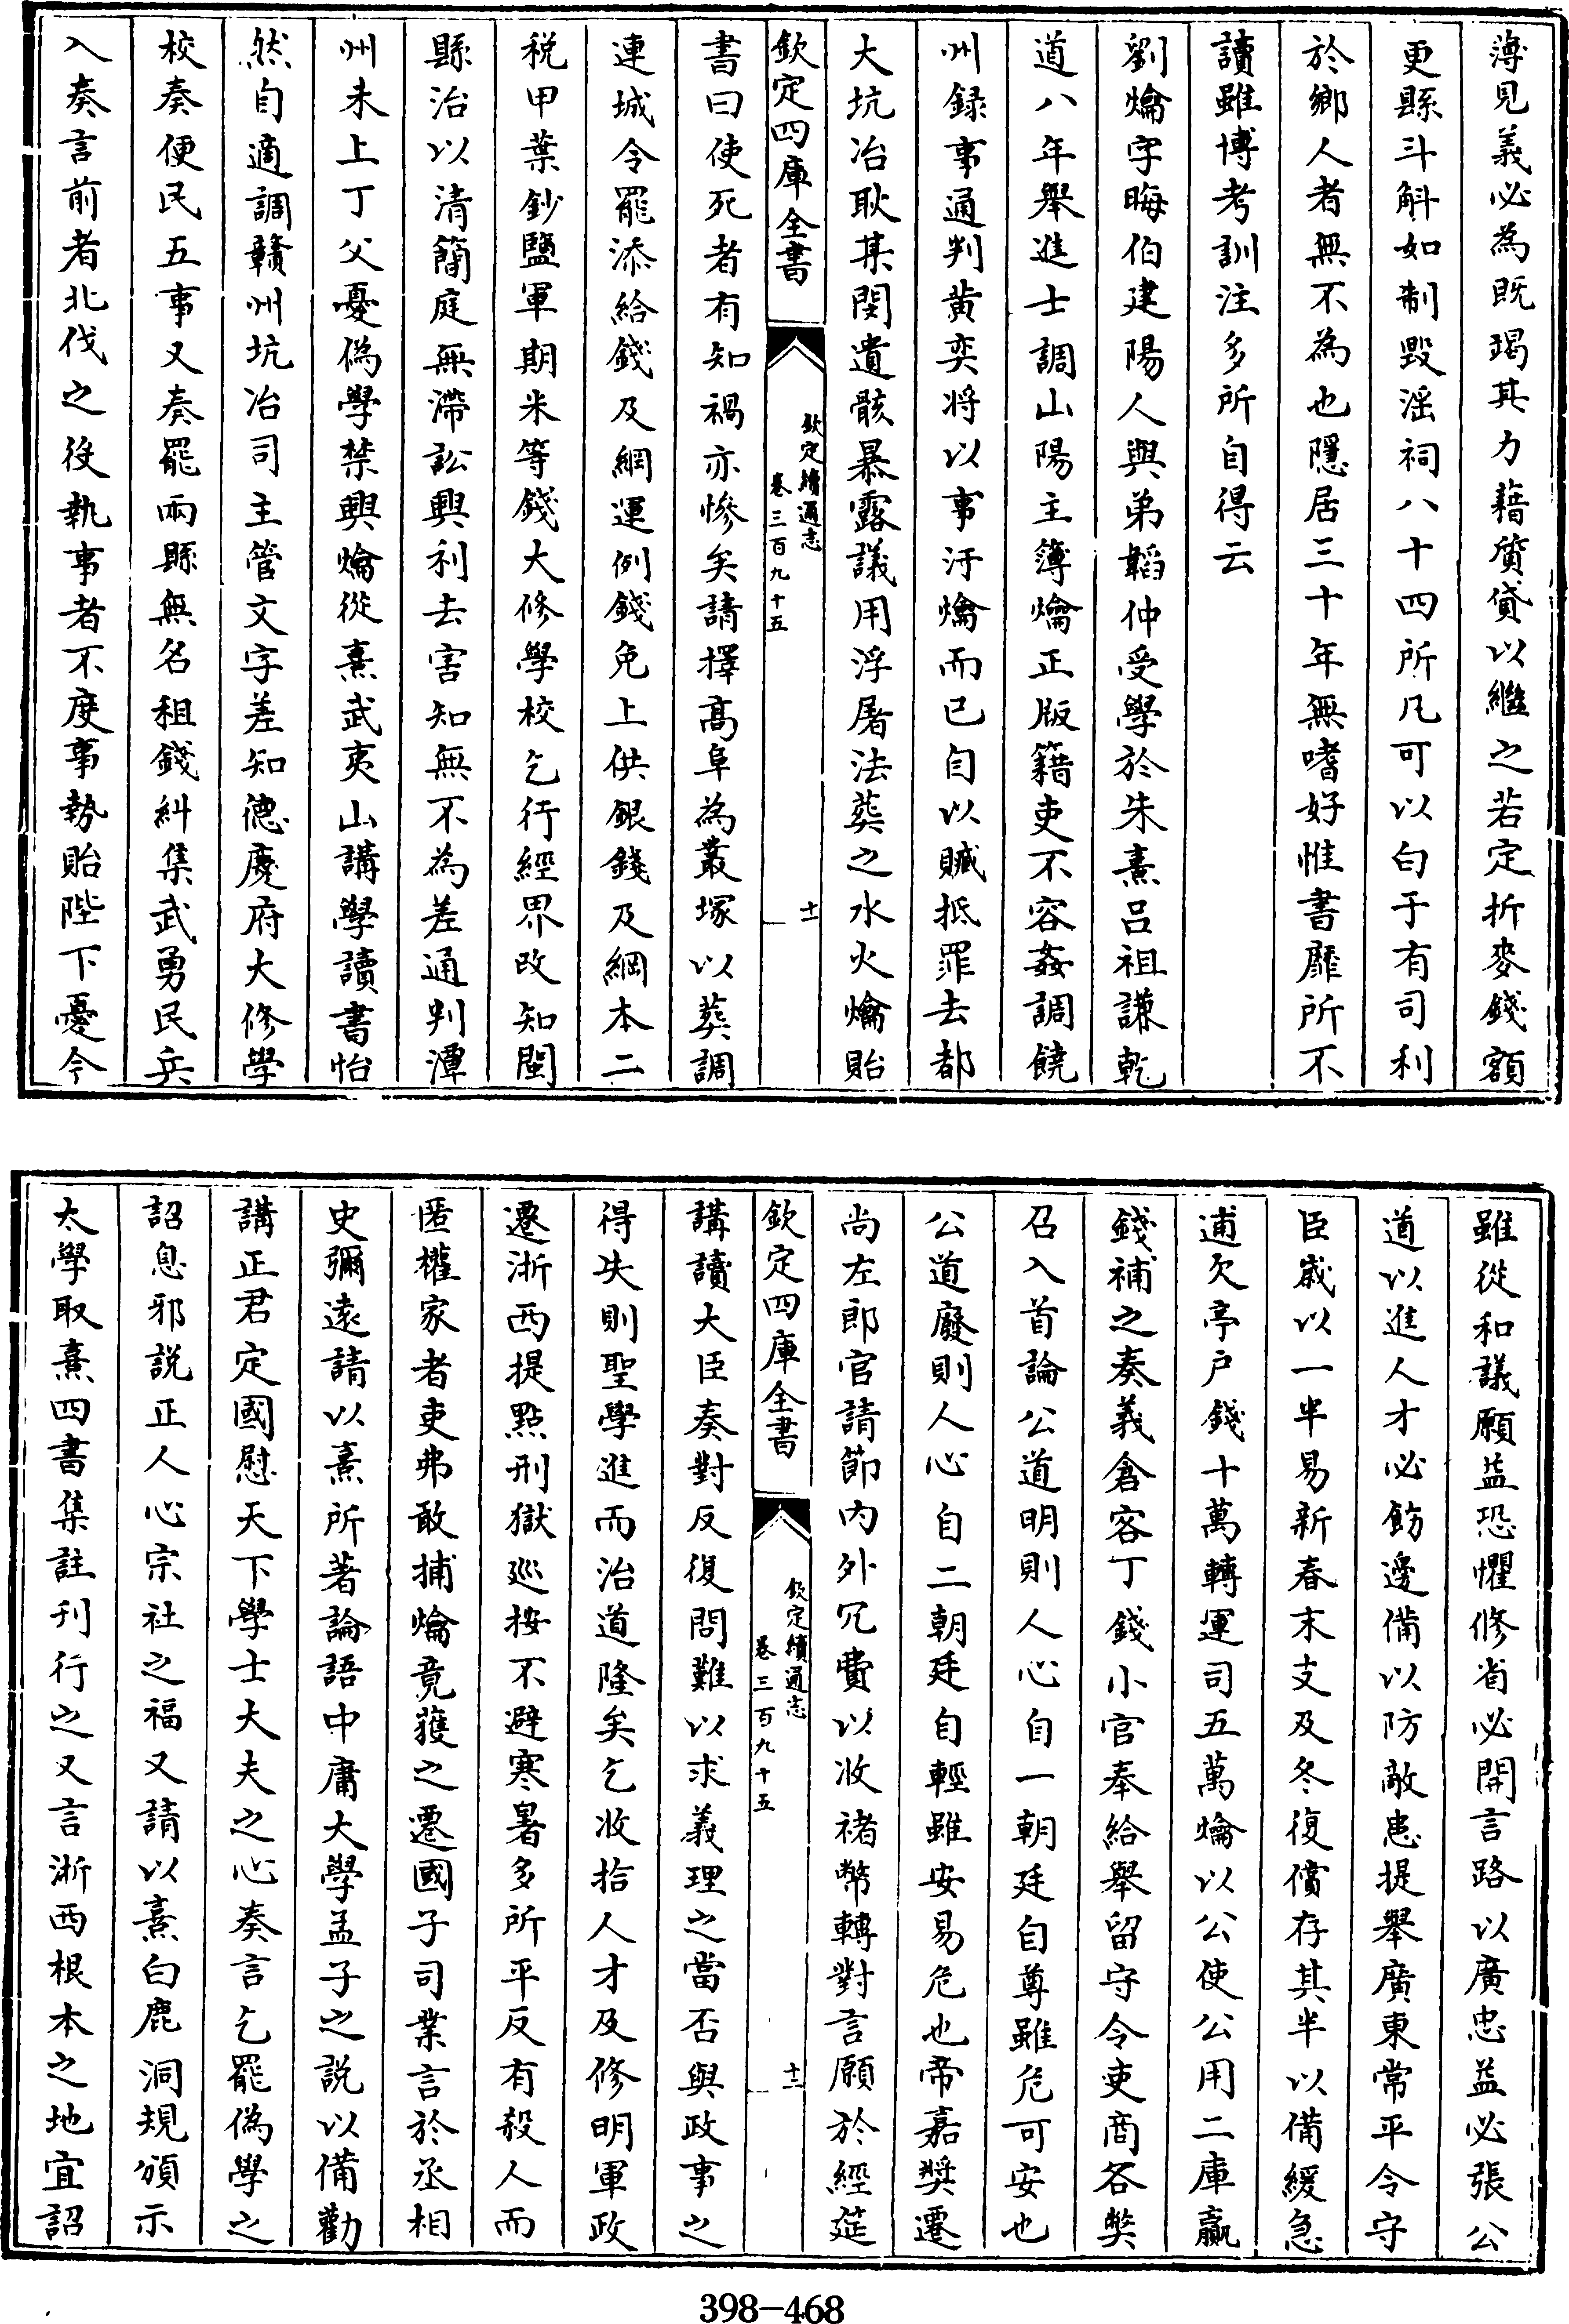 薄見義必為既竭其力藉質貸以繼之若定折麥錢額
更縣斗斛如制毀淫祠八十四所凡可以白于有司利
於鄉人者無不為也隱居三十年無嗜好惟書靡所不
讀雖博考訓注多所自得云
劉爚字晦伯建陽人與弟韜仲受學於朱熹呂祖謙乾
道八年舉進士調山陽主簿爚正版籍吏不容姦調饒
州録事通判黄奕将以事汙爚而已自以贓抵罪去都
大坑冶耿某閔遺骸暴露議用浮屠法葬之水火爚貽
欽定四庫全書
欽定續通志
卷三百九十五
十一
書曰使死者有知禍亦慘矣請擇髙阜為叢塚以葬調
連城令罷添給錢及綱運例錢免上供銀錢及綱本二
税甲葉鈔鹽軍期米等錢大修學校乞行經界改知閩
縣治以清簡庭無滯訟興利去害知無不為差通判潭
州未上丁父憂偽學禁興爚從熹武夷山講學讀書怡
然自適調贛州坑冶司主管文字差知徳慶府大修學
校奏便民五事又奏罷兩縣無名租錢糾集武勇民兵
入奏言前者北伐之役執事者不度事勢貽陛下憂今
雖從和議願益恐懼修省必開言路以廣忠益必張公
道以進人才必飭邊備以防敵患提舉廣東常平令守
臣歲以一半易新春末支及冬復償存其半以備緩急
逋欠亭户錢十萬轉運司五萬爚以公使公用二庫贏
錢補之奏義倉客丁錢小官奉給舉留守令吏商各獘
召入首論公道明則人心自一朝廷自尊雖危可安也
公道廢則人心自二朝廷自輕雖安易危也帝嘉奬遷
尚左郎官請節内外冗費以收禇幣轉對言願於經筵
欽定四庫全書
欽定續通志
卷三百九十五
十二
講讀大臣奏對反復問難以求義理之當否與政事之
得失則聖學進而治道隆矣乞收拾人才及修明軍政
遷浙西提點刑獄廵按不避寒暑多所平反有殺人而
匿權家者吏弗敢捕爚竟獲之遷國子司業言於丞相
史彌遠請以熹所著論語中庸大學孟子之説以備勸
講正君定國慰天下學士大夫之心奏言乞罷偽學之
詔息邪説正人心宗社之福又請以熹白鹿洞規頒示
太學取熹四書集註刊行之又言浙西根本之地宜詔
398—468